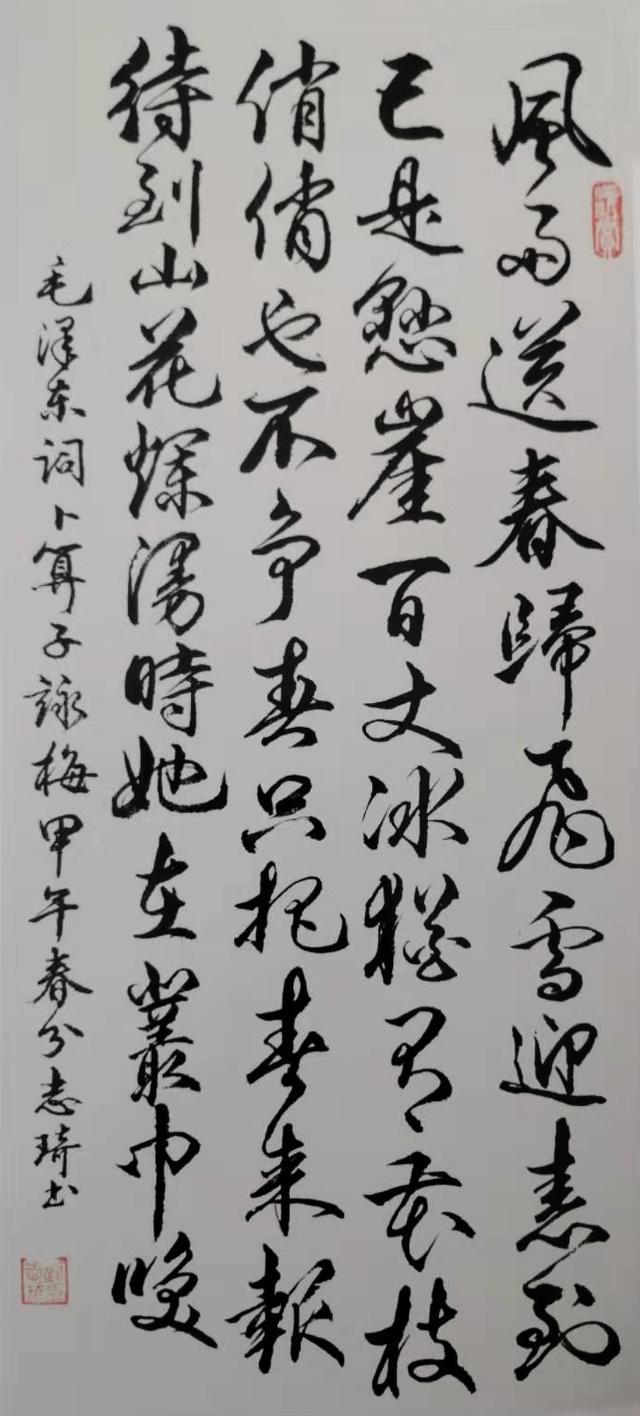 風雨送春歸飛雪迎春到
已是懸崖百丈冰猶有花枝
俏俏也不争春只把春来報
待到山花爛漫時她在叢中咲
毛泽东词卜算子詠梅甲午春分志琦书